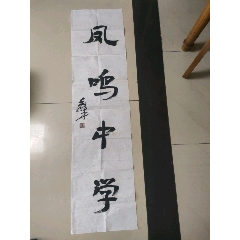 凤鸣中学